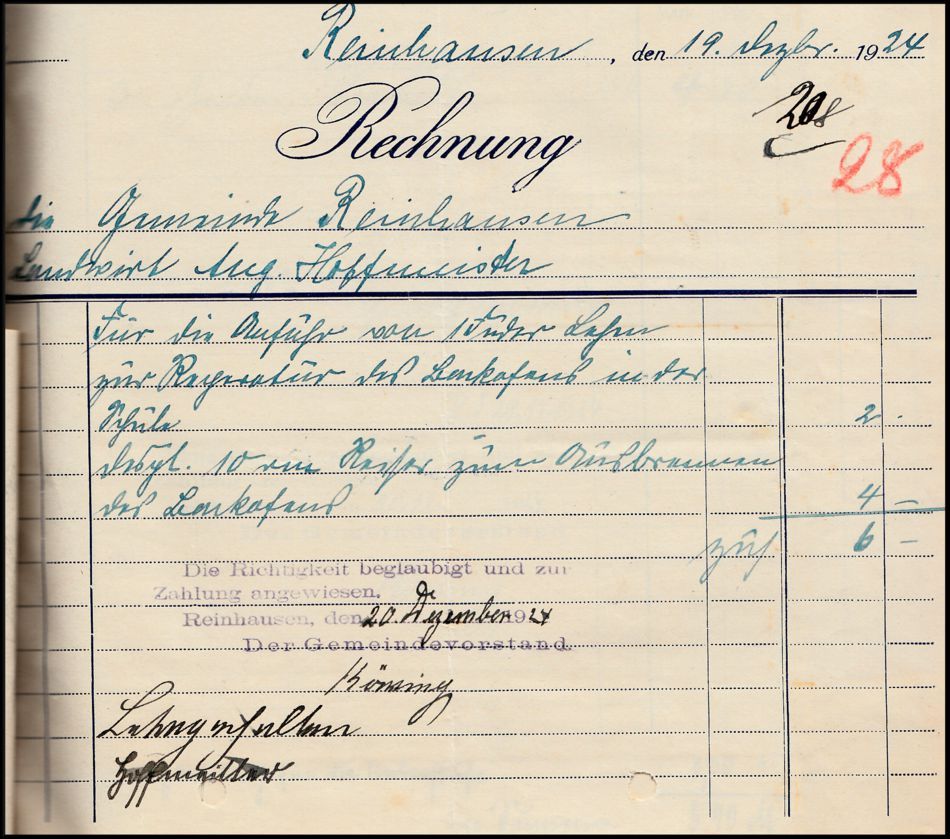 Reinhausen, den 19. Dezbr. 1924
Rechnung
208
28
die Gemeinde Reinhausen
Landwirt Aug. Hoffmeister
Für die Anführ von 1 Fuder Lehm
zur Reperatur des Backofens in der
Schule 2.
desgl. 10 rm Reiser zum Ausbrennen
des Backofens 4 —
zus 6 —
Die Richtigkeit beglaubigt und zur
Zahlung angewiesen.
Reinhausen, den 20. Dezember 1924
Der Gemeindevorstand.
Hoffmeister